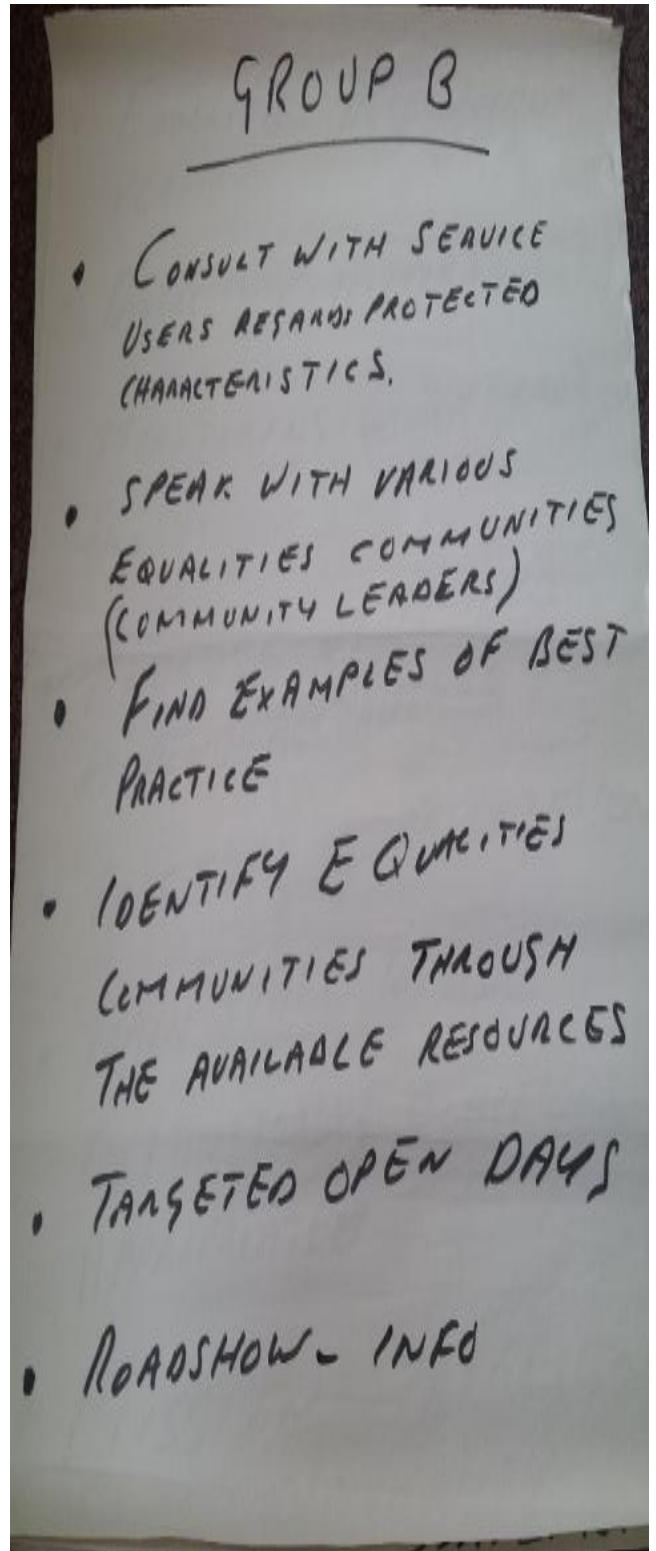 GROUP B
• CONSULT WITH SERVICE
USERS REGARDS PROTECTED
CHARACTERISTICS.
• SPEAK WITH VARIOUS
EQUALITIES COMMUNITIES
(COMMUNITY LEADERS)
• FIND EXAMPLES OF BEST
PRACTICE
• IDENTIFY EQUALITIES
COMMUNITIES THROUGH
THE AVAILABLE RESOURCES
• TARGETED OPEN DAYS
• ROADSHOW - INFO